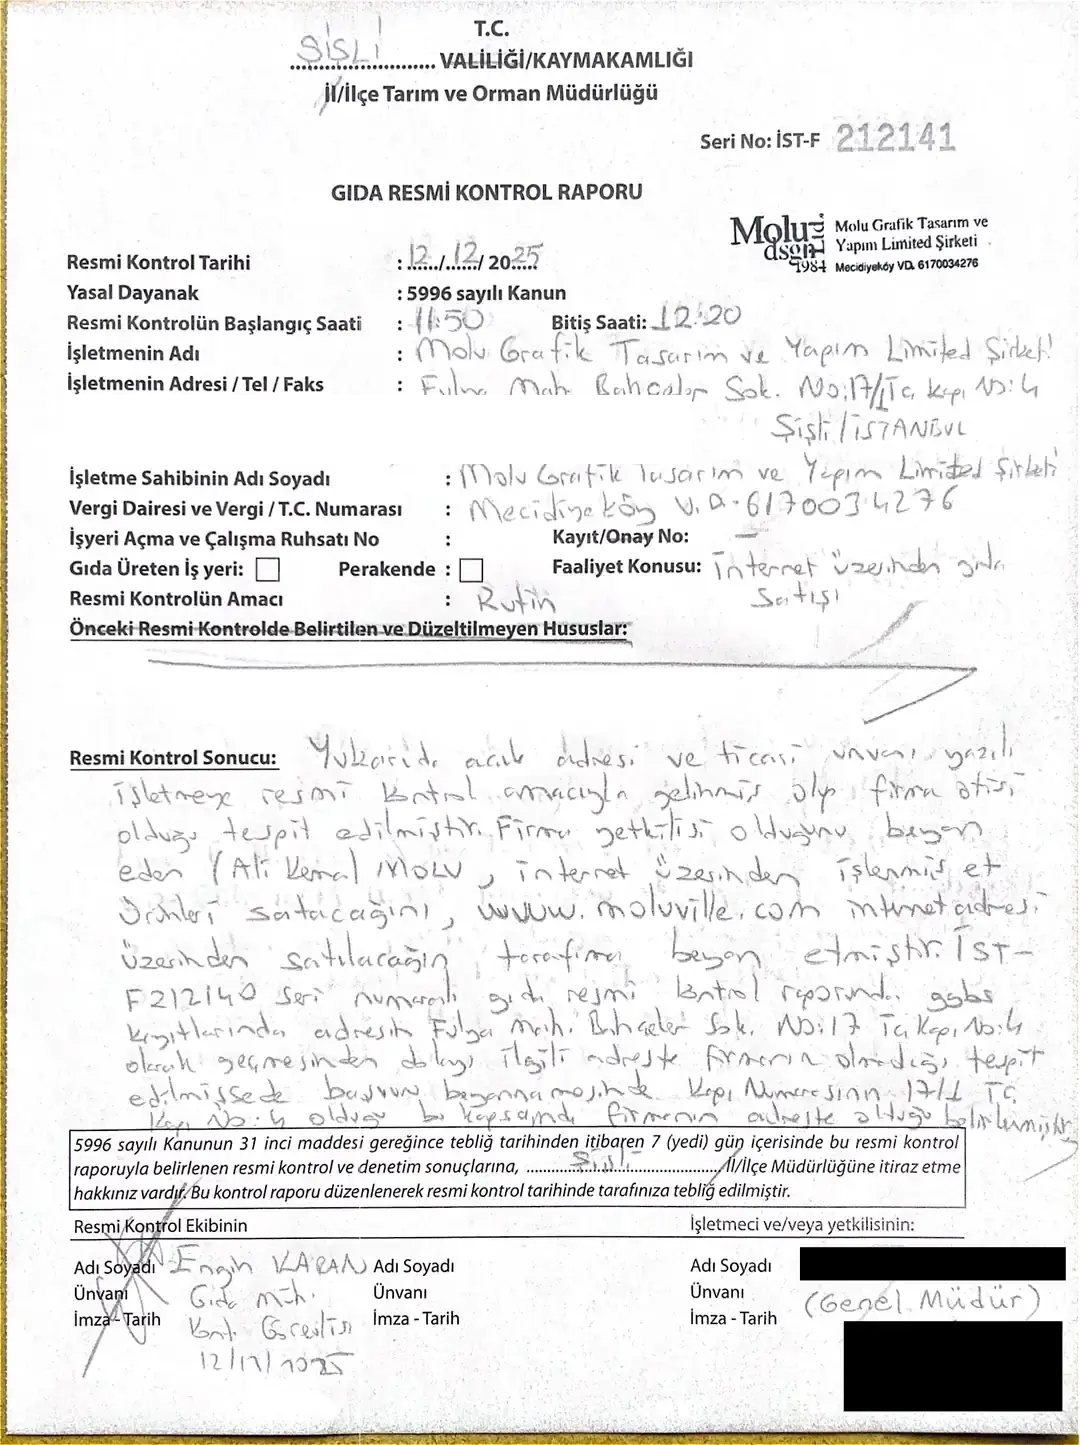 T.C.
ŞİŞLİ VALİLİĞİ/KAYMAKAMLIĞI
İl/İlçe Tarım ve Orman Müdürlüğü
Seri No: İST-F 212141
GIDA RESMİ KONTROL RAPORU
Molu dsgn 1984 Molu Grafik Tasarım ve
Yapım Limited Şirketi
Mecidiyeköy VD. 6170034276
Resmi Kontrol Tarihi : 12/12/2025
Yasal Dayanak : 5996 sayılı Kanun
Resmi Kontrolün Başlangıç Saati : 11:50 Bitiş Saati: 12:20
İşletmenin Adı : Molu Grafik Tasarım ve Yapım Limited Şirketi
İşletmenin Adresi / Tel / Faks : Fulya Mah. Bahçeler Sok. No:17/1 İç Kapı No:4
Şişli/İSTANBUL
İşletme Sahibinin Adı Soyadı : Molu Grafik Tasarım ve Yapım Limited Şirketi
Vergi Dairesi ve Vergi / T.C. Numarası : Mecidiyeköy V.D. 6170034276
İşyeri Açma ve Çalışma Ruhsatı No : Kayıt/Onay No: —
Gıda Üreten İş yeri: Perakende : Faaliyet Konusu: İnternet üzerinden gıda
satışı
Resmi Kontrolün Amacı : Rutin
Önceki Resmi Kontrolde Belirtilen ve Düzeltilmeyen Hususlar:
Resmi Kontrol Sonucu: Yukarıda açık adresi ve ticari unvanı yazılı
işletmeye resmi kontrol amacıyla gelinmiş olup firma ofisi
olduğu tespit edilmiştir. Firma yetkilisi olduğunu beyan
eden (Ali Kemal MOLU, internet üzerinden işlenmiş et
ürünleri satacağını, www.moluville.com internet adresi
üzerinden satılacağın tarafıma beyan etmiştir. İST-
F212140 seri numaralı gıda resmi kontrol raporunda ggbs
kayıtlarında adresin Fulya Mah. Bahçeler Sok. No:17 İç Kapı No:4
olarak geçmesinden dolayı ilgili adreste firmanın olmadığı tespit
edilmişsede başvuru beyannamesinde Kapı Numarasının 17/1 İç
Kapı No:4 olduğu bu kapsamda firmanın adreste olduğu belirlenmiştir
5996 sayılı Kanunun 31 inci maddesi gereğince tebliğ tarihinden itibaren 7 (yedi) gün içerisinde bu resmi kontrol
raporuyla belirlenen resmi kontrol ve denetim sonuçlarına, Şişli İl/İlçe Müdürlüğüne itiraz etme
hakkınız vardır. Bu kontrol raporu düzenlenerek resmi kontrol tarihinde tarafınıza tebliğ edilmiştir.
Resmi Kontrol Ekibinin İşletmeci ve/veya yetkilisinin:
Adı Soyadı Engin KARAN Adı Soyadı Adı Soyadı
Ünvanı Gıda Müh. Ünvanı Ünvanı (Genel Müdür)
İmza - Tarih Kont. Görevlisi İmza - Tarih İmza - Tarih
12/12/2025